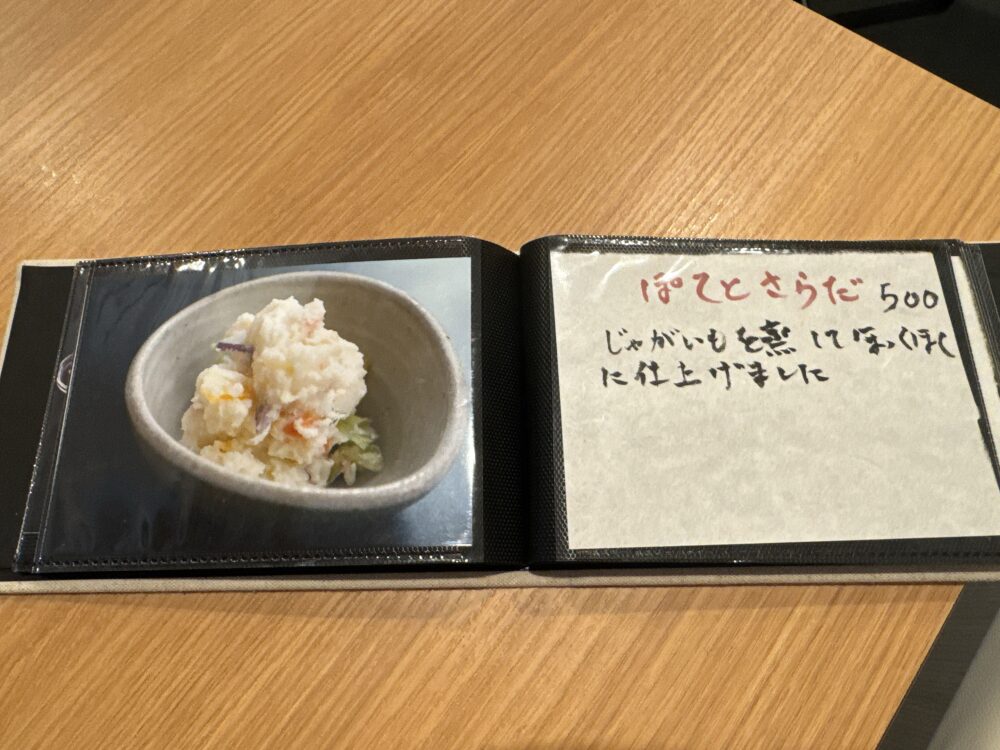 ぽてとさらだ 500
じゃがいもを蒸してほっくほく
に仕上げました